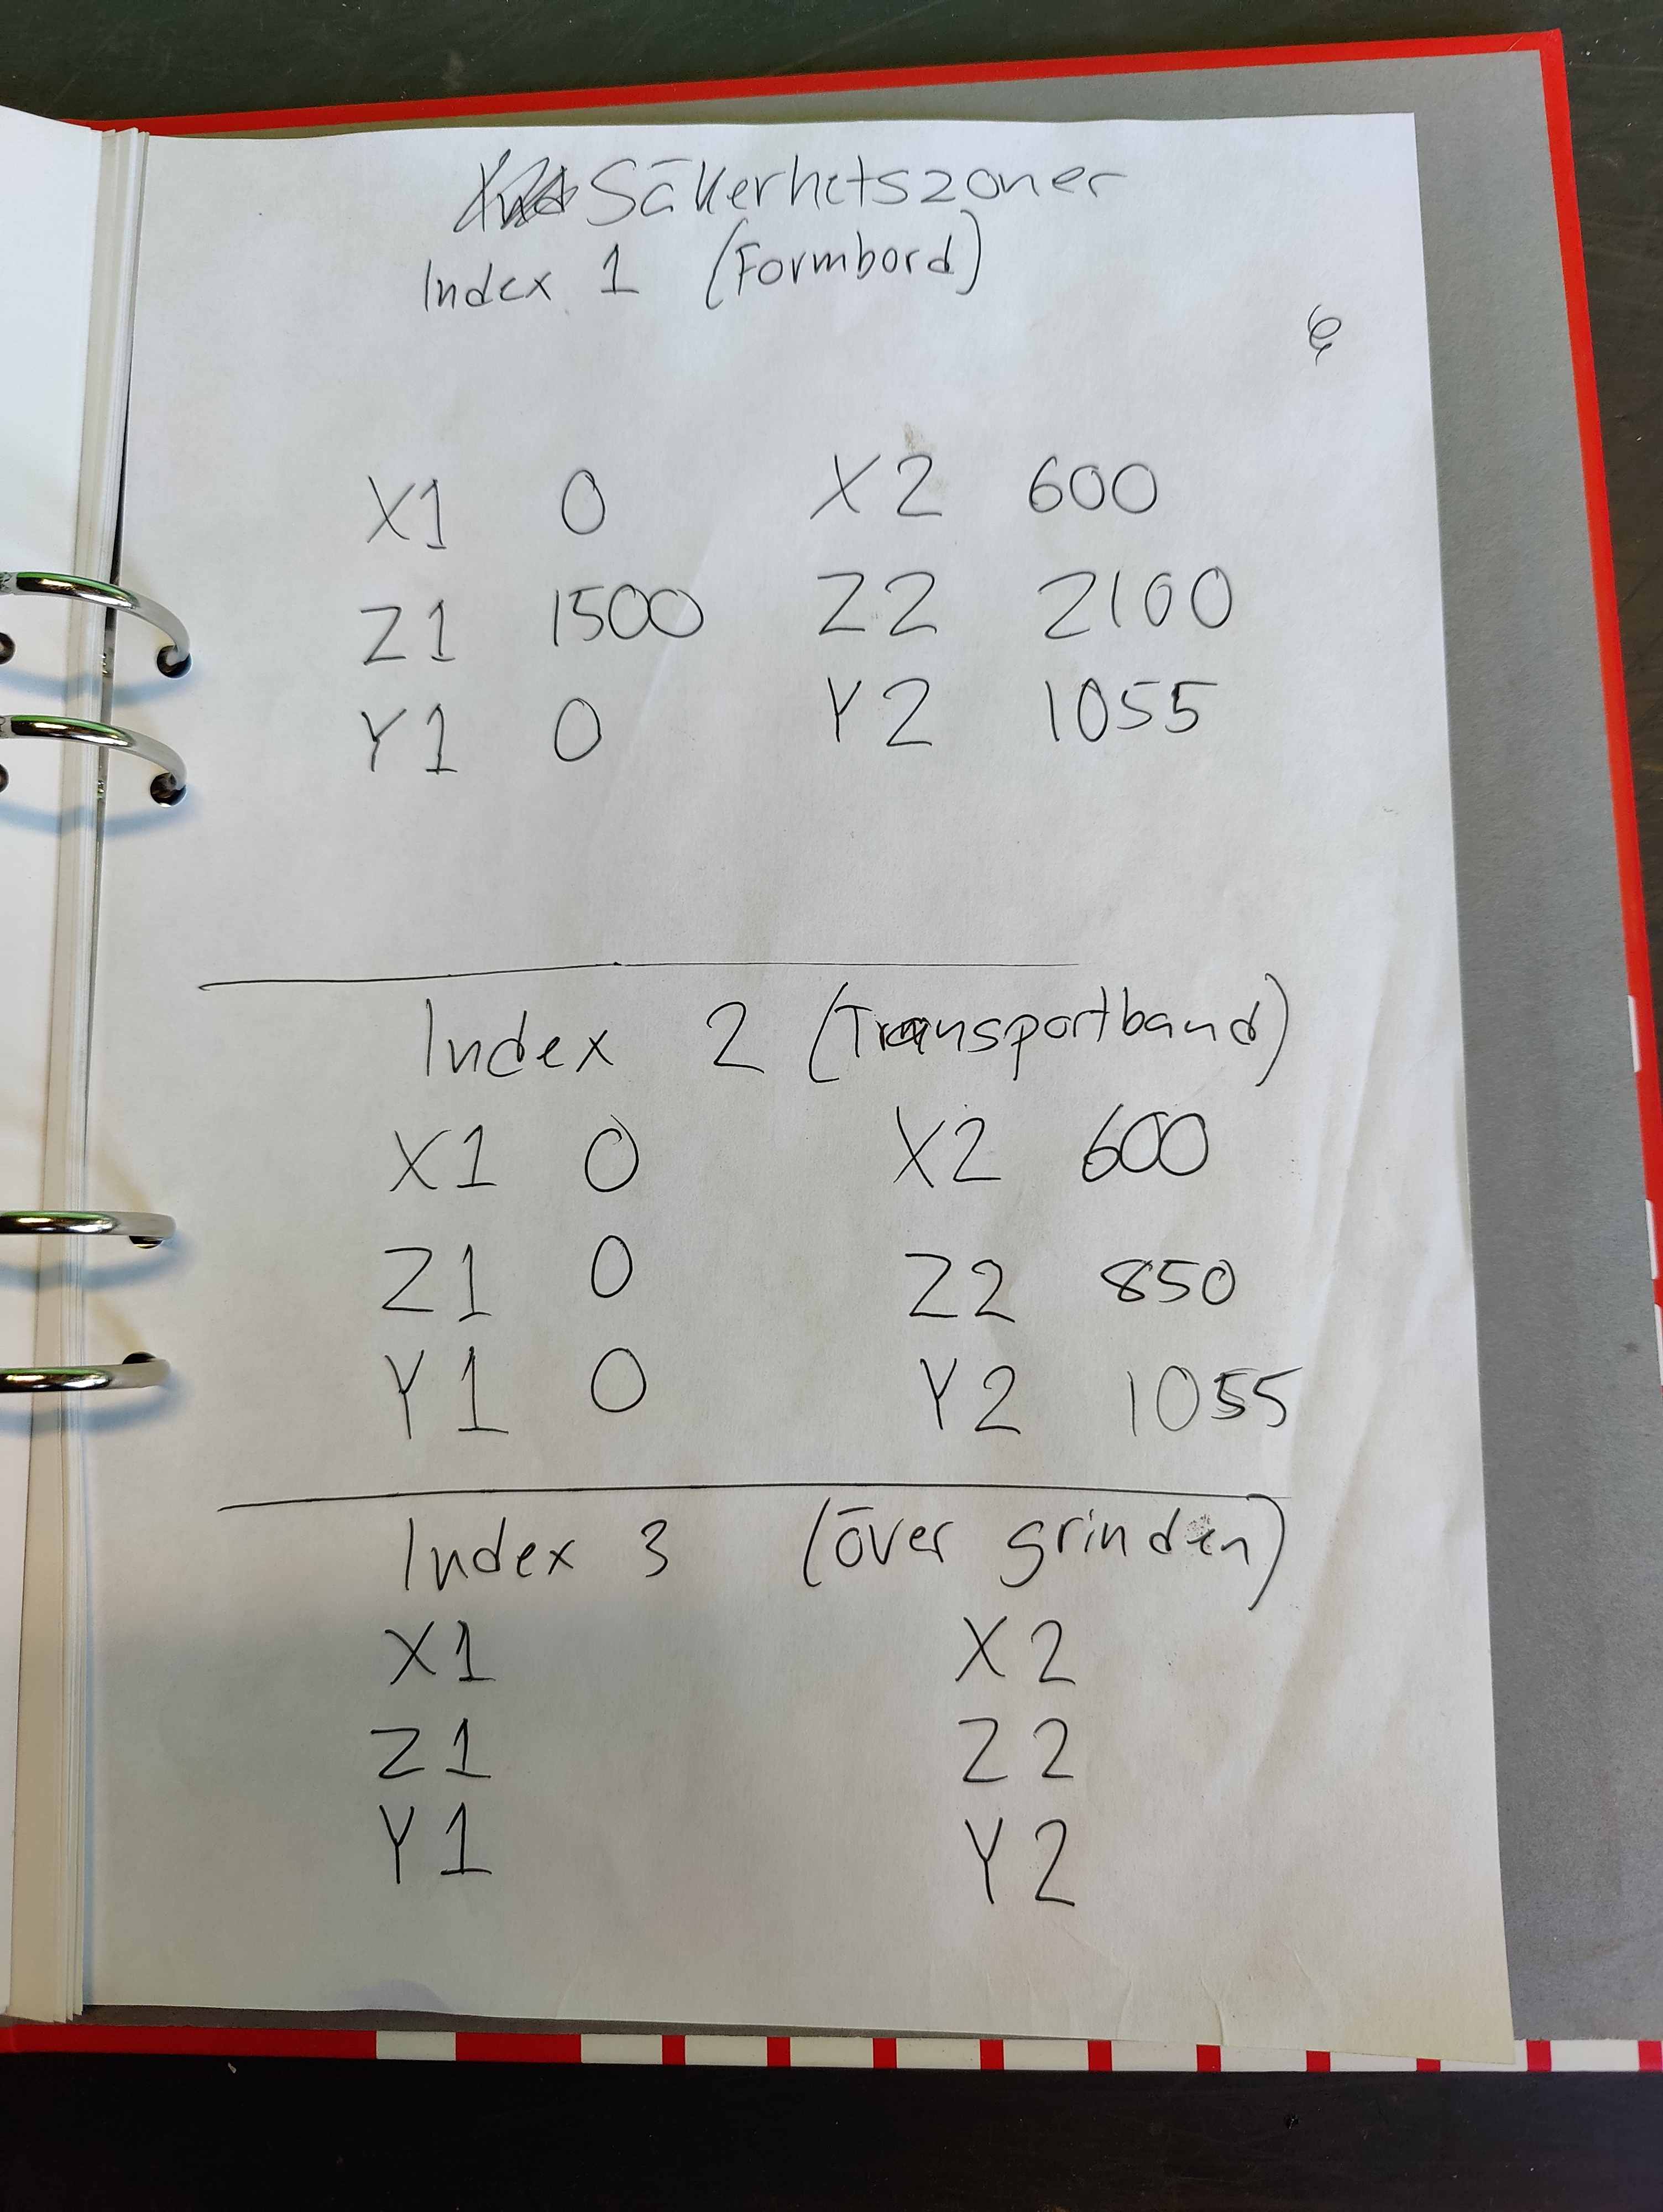 Säkerhetszoner
Index 1 (Formbord)
X1 0 X2 600
Z1 1500 Z2 2100
Y1 0 Y2 1055
Index 2 (Transportband)
X1 0 X2 600
Z1 0 Z2 850
Y1 0 Y2 1055
Index 3 (över grinden)
X1 X2
Z1 Z2
Y1 Y2